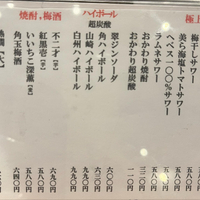 極上
梅干しサワー
美ら海塩トマトサワー
ヘベス一〇〇%サワー
ラムネサワー 五八〇
おかわり焼酎
おかわり超炭酸 一一〇
ハイボール
超炭酸
翠ジンソーダ
角ハイボール 六〇〇
山崎ハイボール 九九〇
白州ハイボール 九九〇
焼酎,梅酒
不二才(芋) 六九〇
紅黒壱(芋) 五八〇
いいちこ深薫(麦) 五八〇
角玉梅酒 六四〇